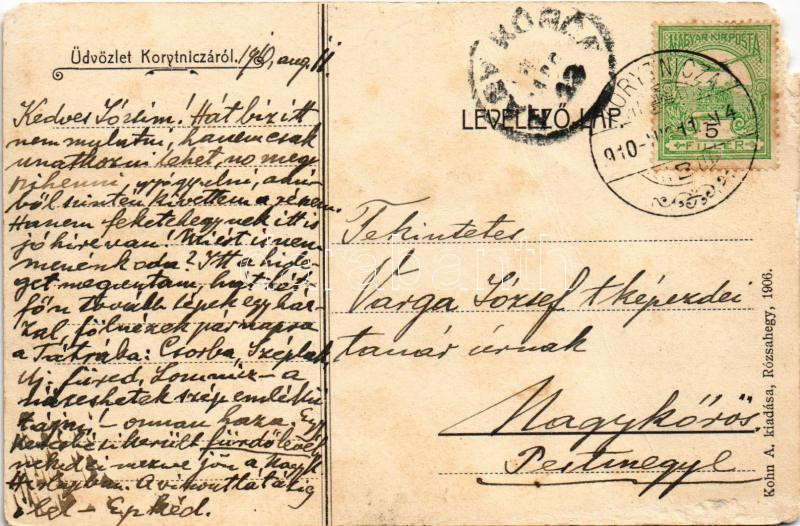 Üdvözlet Korytniczáról. 1910, aug. 11.
Kedves Józsim! Hát biz itt
nem mulatni, hanem csak
unatkozni lehet, no meg
pihenni, gyógyulni,
ből szintén kivettem a részem.
Hanem feketehegynek itt is
jó híre van! Miért is nem
menénk oda? Itt a hide-
get meguntam, hát hét-
főn tovább lépek egy ház-
zal, fölnézek pár napra
a Tátrába: Csorba, Széplak,
Uj-füred, Lomnicz - a
szép emlékű
- onnan haza. Egy
került fürdőlevé
neked jön a
A viszontlátásig
ölel -
MAGYAR KIR. POSTA
5
FILLÉR
KORYTNICZA
910
LEVELEZŐ-LAP
Tekintetes
Varga József t. képezdei
tanár úrnak
Nagykőrös
Pestmegye
Kohn A. kiadása, Rózsahegy, 1906.
darabanth